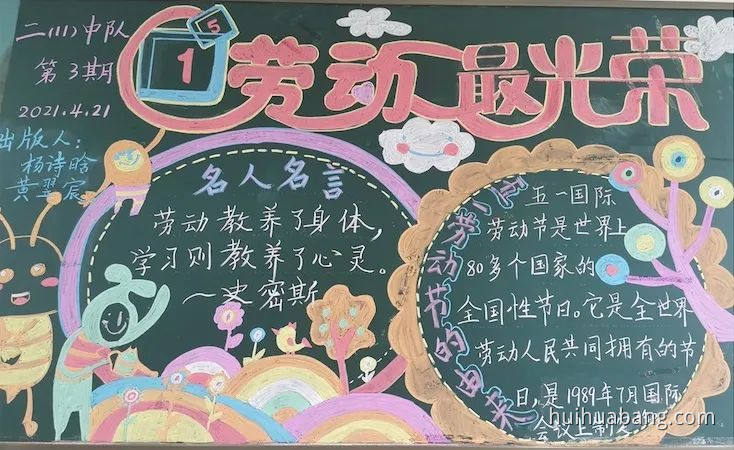 二(1)中队
第3期
2021.4.21
出版人：
杨诗晗
黄翌宸
5
1
劳动最光荣
名人名言
劳动教养了身体，
学习则教养了心灵。
—史密斯
劳动节的由来
五一国际
劳动节是世界上
80多个国家的
全国性节日。它是全世界
劳动人民共同拥有的节
日，是1989年7月国际
会议上
huihuabang.com